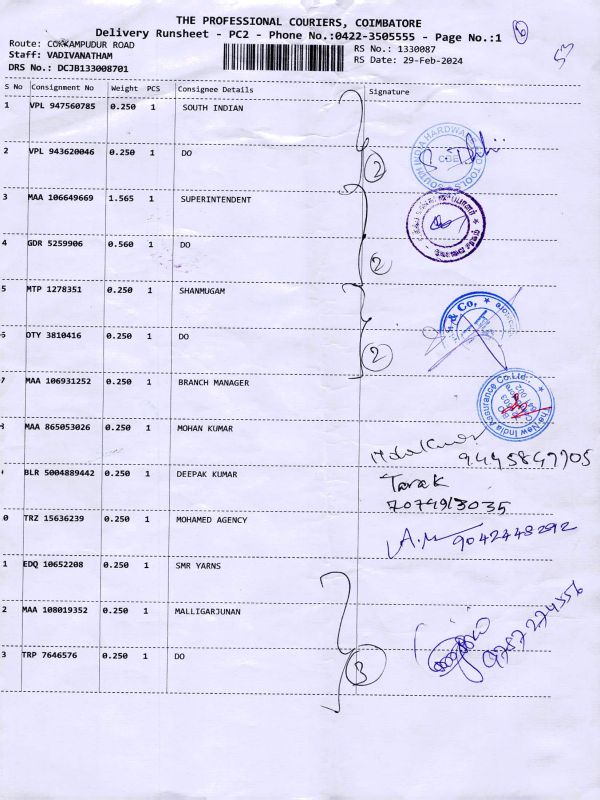 THE PROFESSIONAL COURIERS, COIMBATORE
Delivery Runsheet - PC2 - Phone No.:0422-3505555 - Page No.:1 6
Route: COKKAMPUDUR ROAD
Staff: VADIVANATHAM
DRS No.: DCJB133008701
RS No.: 1330087
RS Date: 29-Feb-2024
53
S No Consignment No Weight PCS Consignee Details Signature
1 VPL 947560785 0.250 1 SOUTH INDIAN
2 VPL 943620046 0.250 1 DO 2
3 MAA 106649669 1.565 1 SUPERINTENDENT
4 GDR 5259906 0.560 1 DO 2
5 MTP 1278351 0.250 1 SHANMUGAM
6 OTY 3810416 0.250 1 DO 2
& Co,
7 MAA 106931252 0.250 1 BRANCH MANAGER
The New India Assurance Co.Ltd.,
MAA 865053026 0.250 1 MOHAN KUMAR
9445847705
BLR 5004889442 0.250 1 DEEPAK KUMAR
Tarak
7074913035
0 TRZ 15636239 0.250 1 MOHAMED AGENCY
A.M 9042448292
1 EDQ 10652208 0.250 1 SMR YARNS
2 MAA 108019352 0.250 1 MALLIGARJUNAN
9787274356
3 TRP 7646576 0.250 1 DO 3